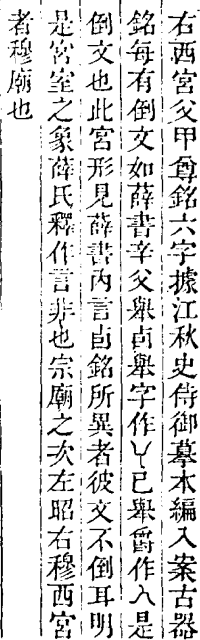 右西宮父甲尊銘六字據江秋史侍御摹本編入案古器
銘每有倒文如薛書辛父舉卣舉字作丫己舉爵作入是
倒文也此宮形見薛書內言卣銘所異者彼文不倒耳明
是宮室之象薛氏釋作言非也宗廟之次左昭右穆西宮
者穆廟也